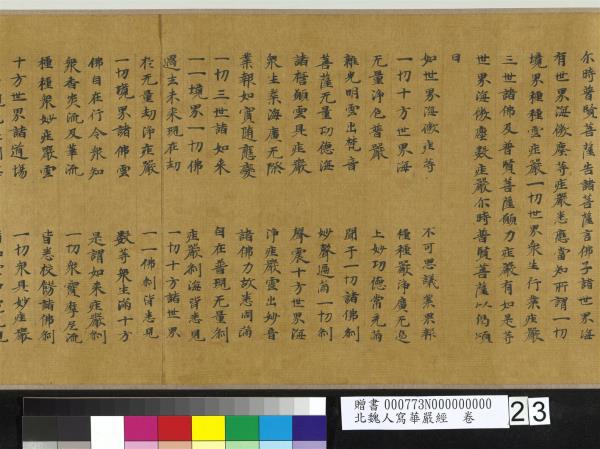 尔時普賢菩薩告諸菩薩言佛子諸世界海
有世界海微塵等莊嚴悉應當知所謂一切
境界種種雲莊嚴一切世界衆生行業莊嚴
三世諸佛及普賢菩薩願力莊嚴有如是等
世界海微塵數莊嚴尒時普賢菩薩以偈頌
曰
如世界海微塵等 不可思議業果報
一切十方世界海 種種嚴淨廣无邊
无量淨色普嚴 上妙功德常充滿
離光明雲出梵音 聞于一切諸佛剎
菩薩无量功德海 妙聲遍滿一切剎
諸誓願雲具莊嚴 聲震十方世界海
衆生業海廣无際 淨莊嚴雲出妙音
業報如實随應變 諸佛力故悉同滿
一切三世諸如来 自在普現无量剎
一一境界一切佛 莊嚴剎海皆悉見
過去未来現在劫 一切十方諸世界
於无量劫淨莊嚴 一一佛剎皆悉見
一切境界諸佛雲 數等衆生滿十方
佛自在行令衆知 是謂如来莊嚴剎
衆香炎流及華流 一切衆寶摩尼流
種種衆妙莊嚴雲 皆悉校餝諸佛剎
十方世界諸道場 一切衆具妙莊嚴
贈書 000773N000000000
北魏人寫華嚴經 卷
23